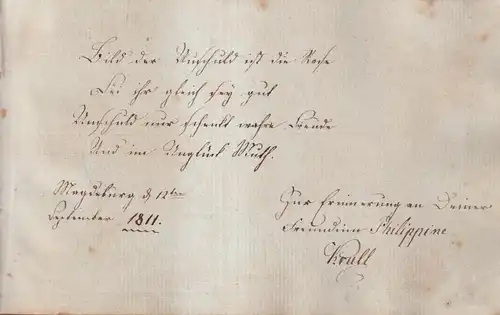 Bild der Unschuld ist die Rose
Sei ihr gleich sey gut
Unschuld nur schenkt wahre Freude
Und im Unglück Muth.
Magdeburg d 12ten
September 1811.
Zur Erinnerung an Deiner
Freundinn Philippine
Krull